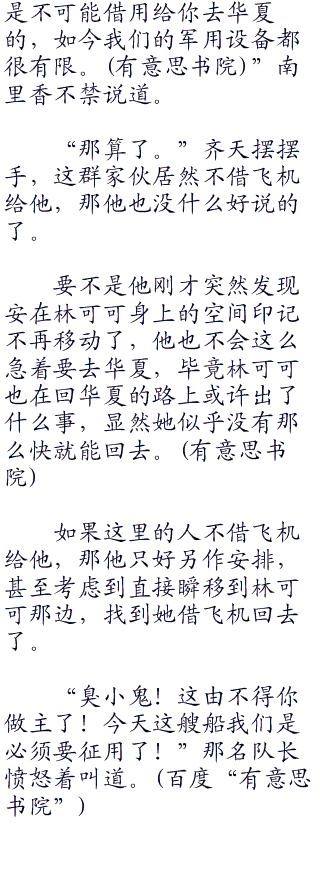 是不可能借用给你去华夏
的，如今我们的军用设备都
很有限。（有意思书院）”南
里香不禁说道。
“那算了。”齐天摆摆
手，这群家伙居然不借飞机
给他，那他也没什么好说的
了。
要不是他刚才突然发现
安在林可可身上的空间印记
不再移动了，他也不会这么
急着要去华夏，毕竟林可可
也在回华夏的路上或许出了
什么事，显然她似乎没有那
么快就能回去。（有意思书
院）
如果这里的人不借飞机
给他，那他只好另作安排，
甚至考虑到直接瞬移到林可
可那边，找到她借飞机回去
了。
“臭小鬼！这由不得你
做主了！今天这艘船我们是
必须要征用了！”那名队长
愤怒着叫道。（百度“有意思
书院”）